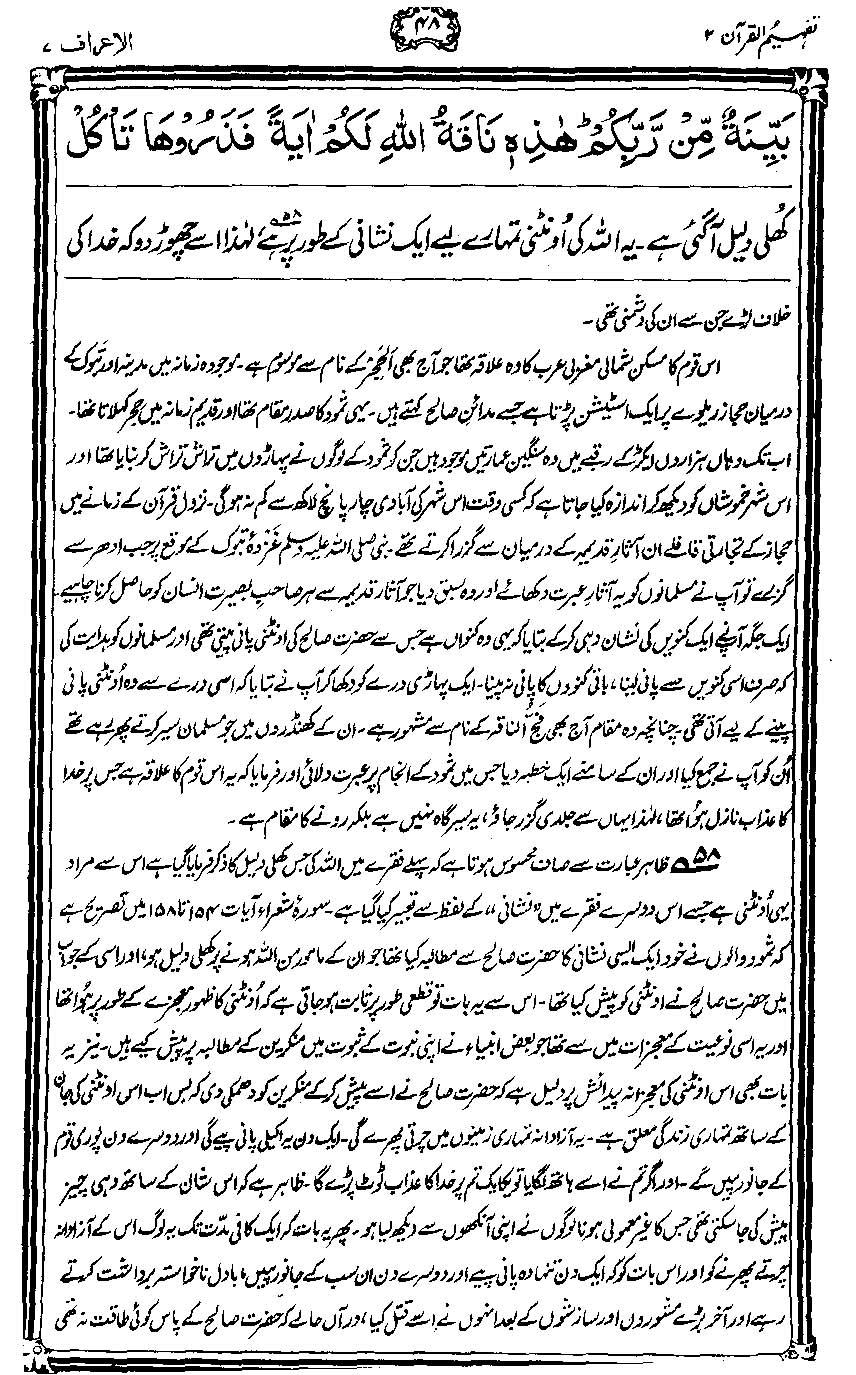 تفہیم القرآن ۲
۴۸
الاعراف ۷
بَيِّنَةٌ مِّنْ رَّبِّكُمْ ؕ هٰذِهٖ نَاقَةُ اللّٰهِ لَكُمْ اٰيَةً فَذَرُوْهَا تَاْكُلْ
کُھلی دلیل آگئی ہے۔ یہ اللہ کی اُونٹنی تمہارے لیے ایک نشانی کے طور پر ہے،۵۸ لہٰذا اسے چھوڑ دو کہ خدا کی
خلاف لڑے جن سے ان کی دشمنی تھی۔
اس قوم کا مسکن شمالی مغربی عرب کا وہ علاقہ تھا جو آج بھی اَلحِجْر کے نام سے موسوم ہے۔ موجودہ زمانہ میں مدینہ اور تبوک کے
درمیان حجاز ریلوے پر ایک اسٹیشن پڑتا ہے جسے مدائنِ صالح کہتے ہیں۔ یہی ثمود کا صدر مقام تھا اور قدیم زمانہ میں حجر کہلاتا تھا۔
اب تک وہاں ہزاروں ایکڑ کے رقبے میں وہ سنگین عمارتیں موجود ہیں جن کو ثمود کے لوگوں نے پہاڑوں میں تراش تراش کر بنایا تھا اور
اس شہرِ خموشاں کو دیکھ کر اندازہ کیا جاتا ہے کہ کسی وقت اس شہر کی آبادی چار پانچ لاکھ سے کم نہ ہوگی۔ نزولِ قرآن کے زمانے میں
حجاز کے تجارتی قافلے ان آثارِ قدیمہ کے درمیان سے گزرا کرتے تھے۔ نبی صلی اللہ علیہ وسلم غزوۂ تبوک کے موقع پر جب ادھر سے
گزرے تو آپ نے مسلمانوں کو یہ آثارِ عبرت دکھائے اور وہ سبق دیا جو آثارِ قدیمہ سے ہر صاحبِ بصیرت انسان کو حاصل کرنا چاہیے۔
ایک جگہ آپ نے ایک کنویں کی نشان دہی کر کے بتایا کہ یہی وہ کنواں ہے جس سے حضرت صالح کی اونٹنی پانی پیتی تھی اور مسلمانوں کو ہدایت کی
کہ صرف اسی کنویں سے پانی لینا، باقی کنووں کا پانی نہ پینا۔ ایک پہاڑی درے کو دکھا کر آپ نے بتایا کہ اسی درے سے وہ اُونٹنی پانی
پینے کے لیے آتی تھی۔ چنانچہ وہ مقام آج بھی فجّ الناقہ کے نام سے مشہور ہے۔ ان کے کھنڈروں میں جو مسلمان سیر کرتے پھر رہے تھے
اُن کو آپ نے جمع کیا اور ان کے سامنے ایک خطبہ دیا جس میں ثمود کے انجام پر عبرت دلائی اور فرمایا کہ یہ اس قوم کا علاقہ ہے جس پر خدا
کا عذاب نازل ہوا تھا، لہٰذا یہاں سے جلدی گزر جاؤ، یہ سیرگاہ نہیں ہے بلکہ رونے کا مقام ہے۔
۵۸ ظاہر عبارت سے صاف محسوس ہوتا ہے کہ پہلے فقرے میں اللہ کی جس کھلی دلیل کا ذکر فرمایا گیا ہے اس سے مراد
یہی اُونٹنی ہے جسے اس دوسرے فقرے میں ”نشانی“ کے لفظ سے تعبیر کیا گیا ہے۔ سورۂ شعراء آیات ۱۵۴ تا ۱۵۸ میں تصریح ہے
کہ ثمود والوں نے خود ایک ایسی نشانی کا حضرت صالح سے مطالبہ کیا تھا جو ان کے مامور من اللہ ہونے پر کھلی دلیل ہو، اور اسی کے جواب
میں حضرت صالح نے اونٹنی کو پیش کیا تھا۔ اس سے یہ بات تو قطعی طور پر ثابت ہوجاتی ہے کہ اُونٹنی کا ظہور معجزے کے طور پر ہوا تھا
اور یہ اسی نوعیت کے معجزات میں سے تھا جو بعض انبیاء نے اپنی نبوت کے ثبوت میں منکرین کے مطالبہ پر پیش کیے ہیں۔ نیز یہ
بات بھی اس اونٹنی کی معجزانہ پیدائش پر دلیل ہے کہ حضرت صالح نے اسے پیش کر کے منکرین کو دھمکی دی کہ بس اب اس اونٹنی کی جان
کے ساتھ تمہاری زندگی معلق ہے۔ یہ آزادانہ تمہاری زمینوں میں چرتی پھرے گی۔ ایک دن یہ اکیلی پانی پیے گی اور دوسرے دن پوری قوم
کے جانور پیں گے۔ اور اگر تم نے اسے ہاتھ لگایا تو یکایک تم پر خدا کا عذاب ٹوٹ پڑے گا۔ ظاہر ہے کہ اس شان کے ساتھ وہی چیز
پیش کی جاسکتی تھی جس کا غیر معمولی ہونا لوگوں نے اپنی آنکھوں سے دیکھ لیا ہو۔ پھر یہ بات کہ ایک کافی مدّت تک یہ لوگ اس کے آزادانہ
چرتے پھرنے کو اور اس بات کو کہ ایک دن تنہا وہ پانی پیے اور دوسرے دن ان سب کے جانور پیں، بادل ناخواستہ برداشت کرتے
رہے اور آخر بڑے مشوروں اور سازشوں کے بعد انہوں نے اسے قتل کیا، در آں حالے کہ حضرت صالح کے پاس کوئی طاقت نہ تھی